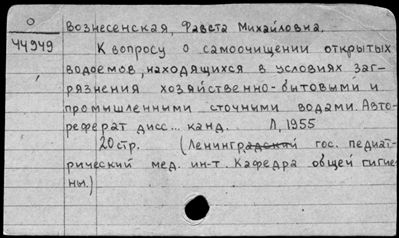 О
44949
Вознесенская, Фавста Михайловна.
К вопросу о самоочищении открытых
водоемов, находящихся в условиях заг-
рязнения хозяйственно-бытовыми и
промышленными сточными водами. Авто-
реферат дисс... канд. Л, 1955
20 стр. (Ленинградский гос. педиат-
рический мед. ин-т. Кафедра общей гигие-
ны.)